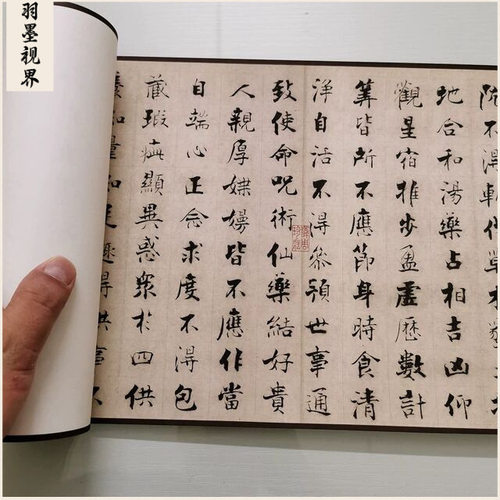 羽墨视界
不得
地合和湯藥占相吉凶仰
觀星宿推步盈虛歷數計
筭皆所不應節身時食清
淨自活不得參預世事通
致使命呪術仙藥結好貴
人親厚媟嫚皆不應作當
自端心正念求度不得包
藏瑕疵顯異惑眾於四供
養知量知足趣得供事不